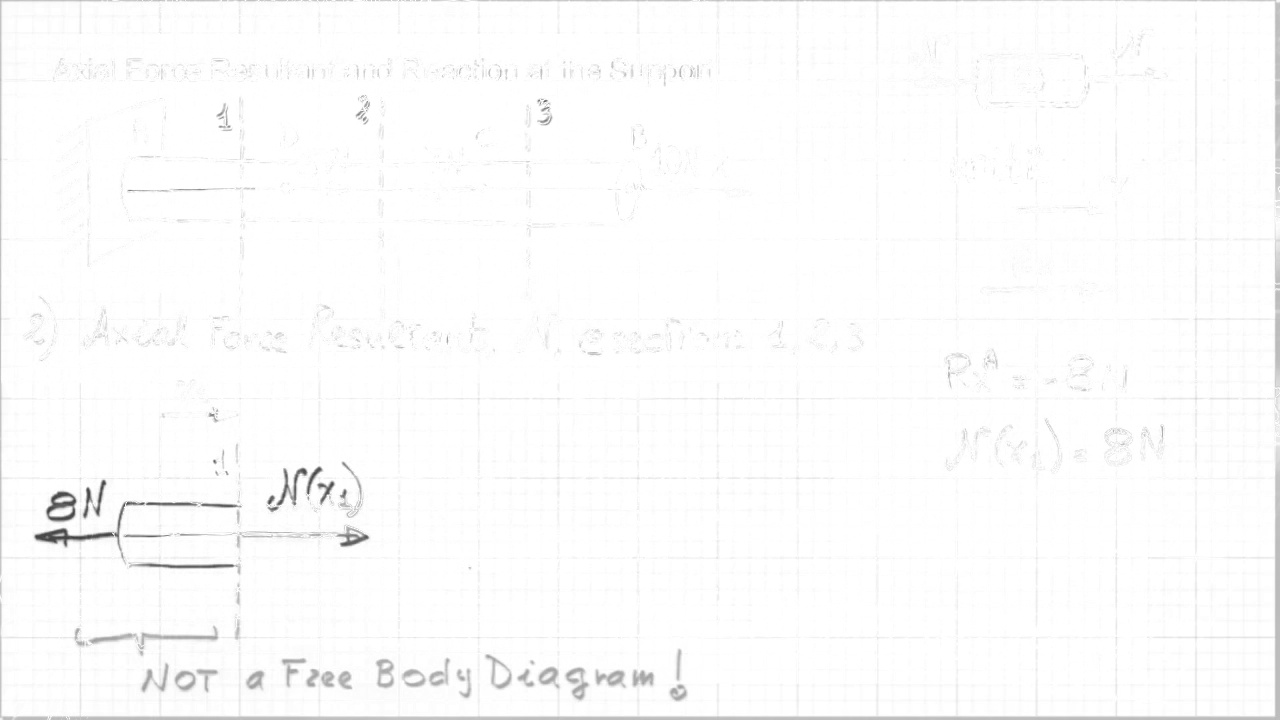 Axial Force Resultant and Reaction at the Support
N
1 2 3
D C B
10N x
2) Axial Force Resultant, N, @ sections 1, 2, 3
RxA = -8N
N(x1) = 8N
x1
1
8N N(x1)
NOT a Free Body Diagram!